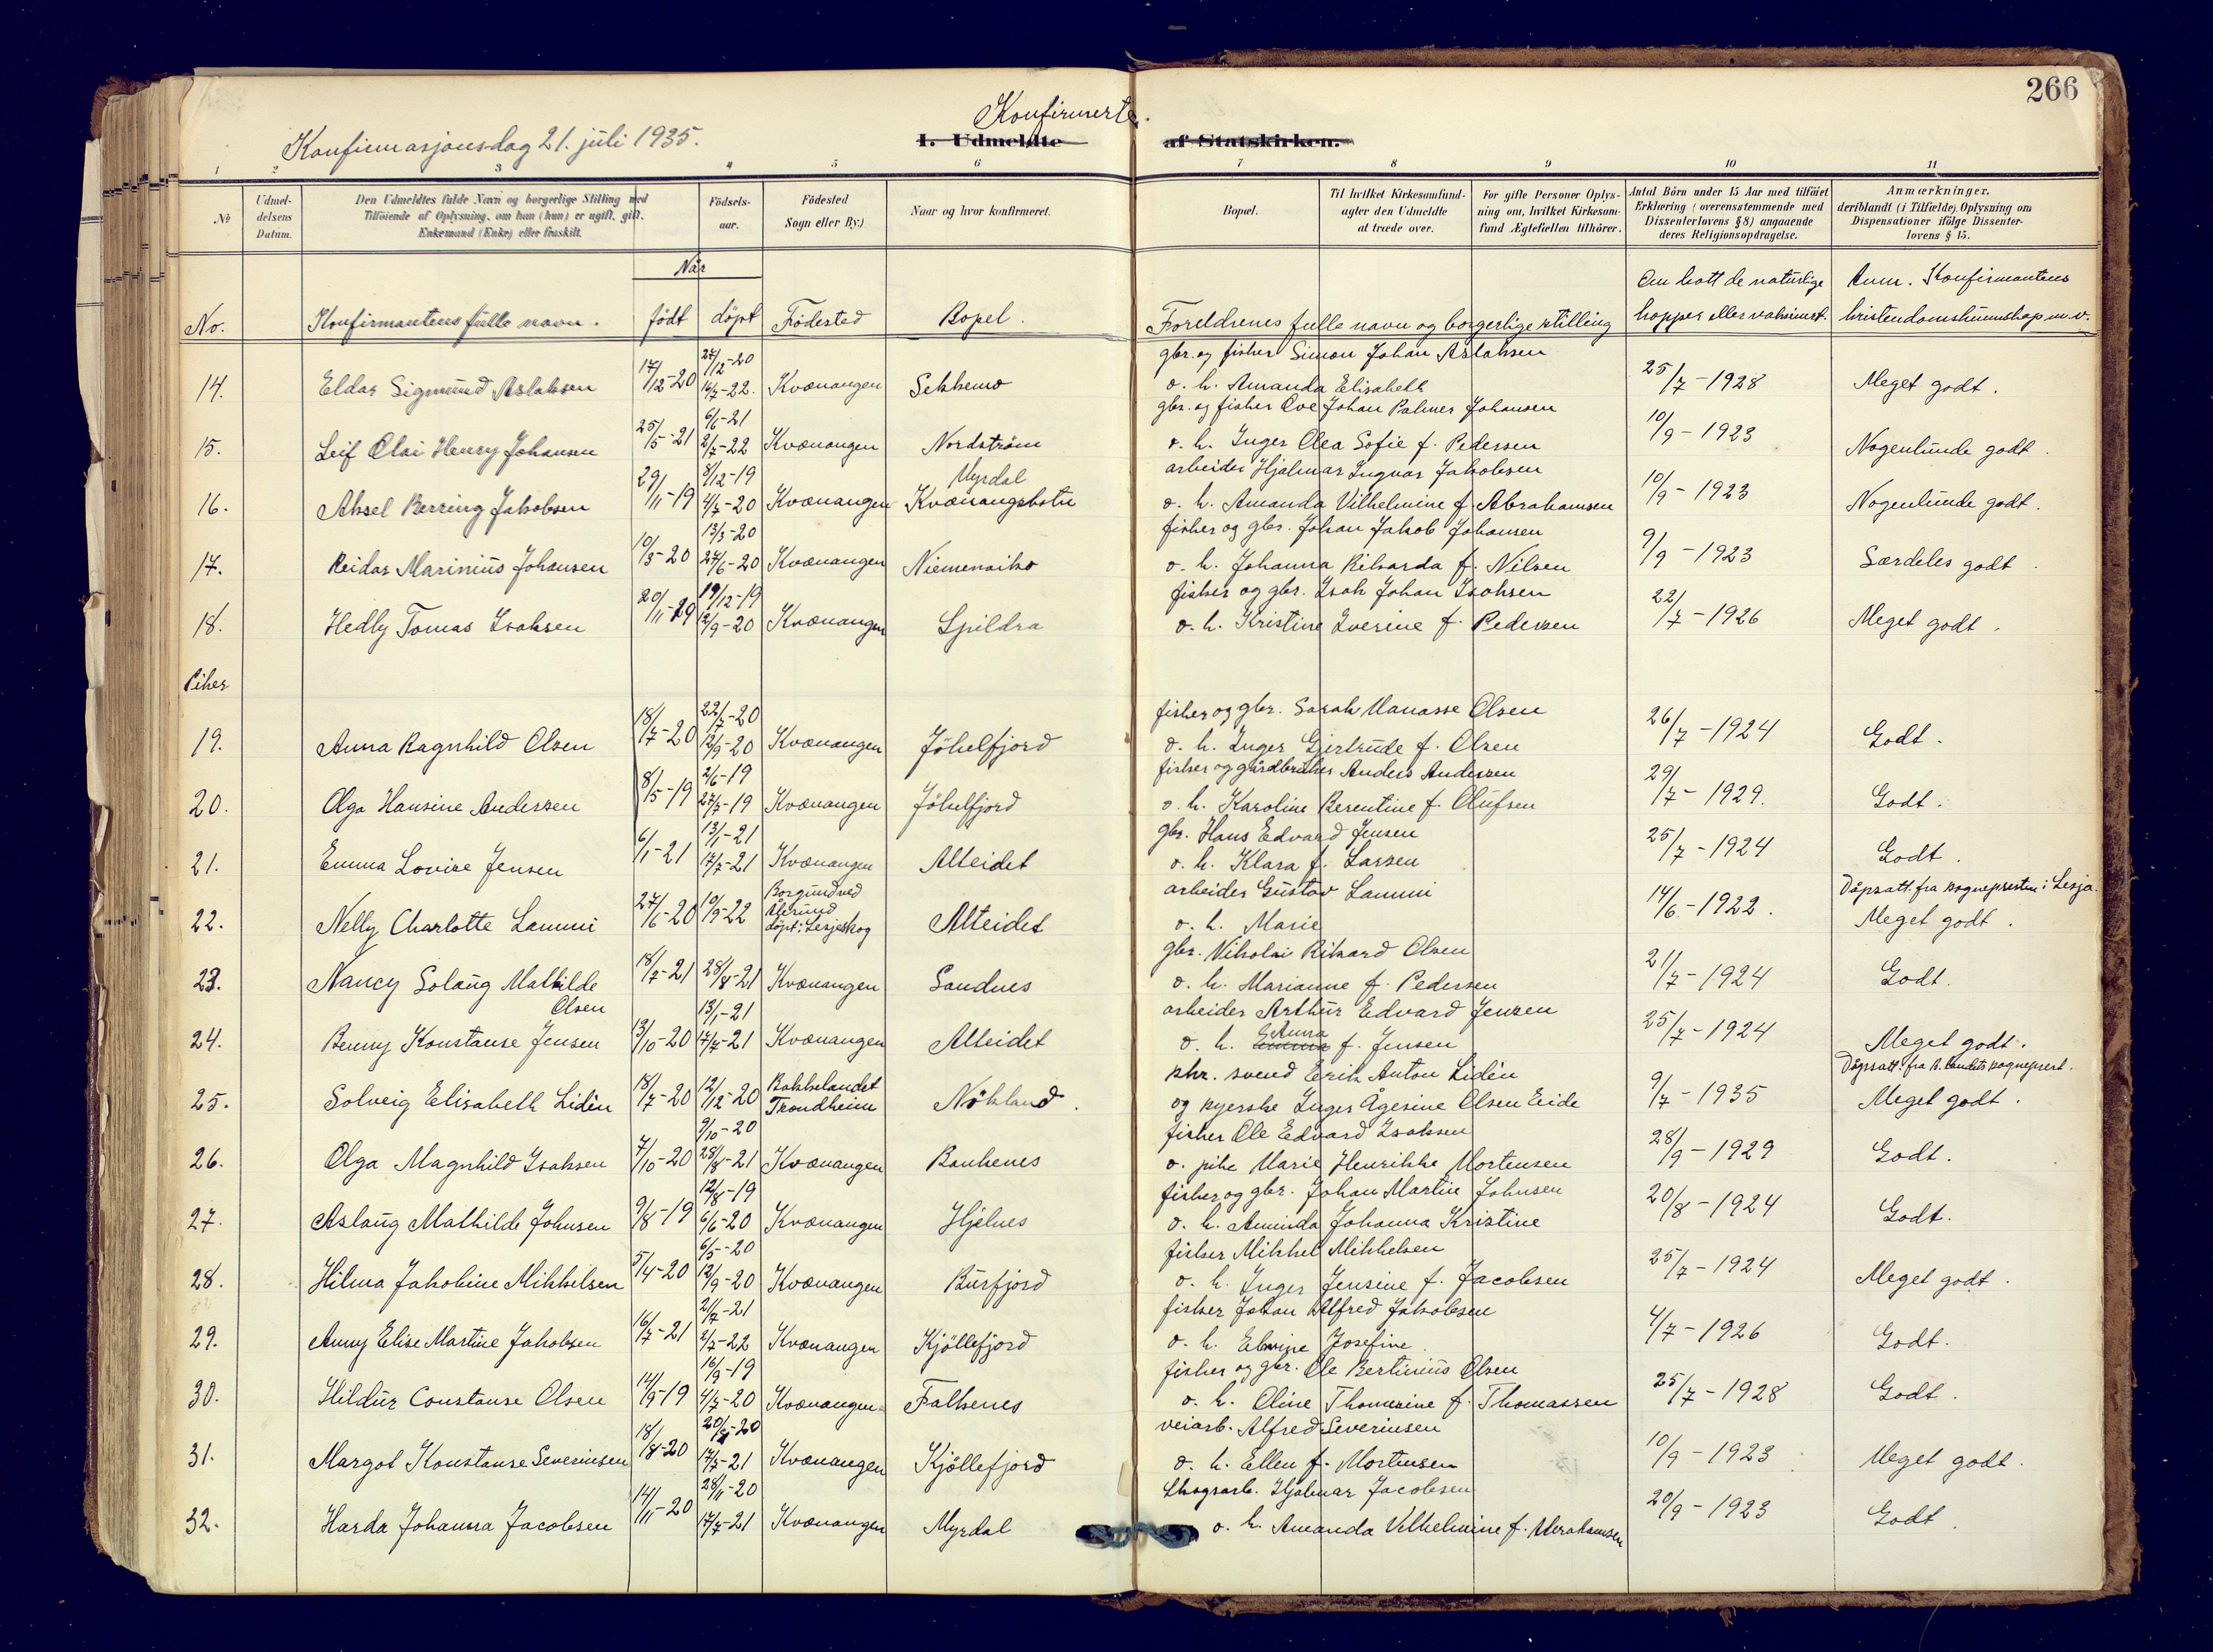 266
Konfirmerte.
Konfirmasjonsdag 21. juli 1935.
I. Udmeldte af Statskirken.
1 2 3 4 5 6 7 8 9 10 11
No Udmeldelsens Datum. Den Udmeldtes fulde Navn og borgerlige Stilling med Tilføiende af Oplysning, om han (hun) er ugift, gift, Enkemand (Enke) eller fraskilt. Fødselsaar. Fødested Sogn eller By.) Naar og hvor konfirmeret. Bopæl. Til hvilket Kirkesamfund agter den Udmeldte at træde over. For gifte Personer Oplysning om, hvilket Kirkesamfund Ægtefællen tilhører. Antal Børn under 15 Aar med tilføiet Erklæring (overensstemmende med Dissenterlovens § 8) angaaende deres Religionsopdragelse. Anmærkninger. deriblandt (i Tilfælde) Oplysning om Dispensationer ifølge Dissenterlovens § 15.
Når
Om hatt de naturlige Anm. Konfirmantens
No. Konfirmantens fulle navn. født döpt Fødested Bopel. Foreldrenes fulle navn og borgerlige stilling kopper eller vaksinert. kristendomskunnskap m.v.
27/12-20 gbr. og fisker Simon Johan Aslaksen
14. Eldar Sigmund Aslaksen 17/12-20 16/7-22. Kvænangen Sekkemo o. h. Amanda Elisabeth 25/7-1928 Meget godt.
6/6-21 gbr. og fisker Ove Johan Palmer Johansen
15. Leif Olai Henry Johansen 25/5-21 2/7-22 Kvænangen Nordström o. h. Inger Olea Sofie f. Pedersen 10/9-1923 Nogenlunde godt.
8/12-19 Myrdal arbeider Hjalmar Ingvar Jakobsen
16. Aksel Berring Jakobsen 29/11-19 4/7-20 Kvænangen Kvænangsbotn o. h. Amanda Vilhelmine f. Abrahamsen 10/9-1923 Nogenlunde godt.
13/3-20 fisker og gbr. Johan Jakob Johansen
17. Reidar Marinius Johansen 10/3-20 27/6-20 Kvænangen Niemenaiko o. h. Johanna Rikarda f. Nilsen 9/9-1923 Særdeles godt.
19/12-19 fisker og gbr. Isak Johan Isaksen
18. Hedly Tomas Isaksen 20/11-19 12/9-20 Kvænangen Spildra o. h. Kristine Iverine f. Pedersen 22/7-1926 Meget godt.
Piker
22/7-20 fisker og gbr. Sarak Manasse Olsen
19. Anna Ragnhild Olsen 18/7-20 12/9-20 Kvænangen Jökelfjord o. h. Inger Gjertrude f. Olsen 26/7-1924 Godt.
2/6-19 fisker og gårdbruker Anders Andersen
20. Olga Hansine Andersen 8/5-19 27/7-19 Kvænangen Jökelfjord o. h. Karoline Berentine f. Olufsen 29/7-1929. Godt.
13/1-21 gbr. Hans Edvard Jensen
21. Emma Lovise Jensen 6/1-21 17/7-21 Kvænangen Alteidet o. h. Klara f. Larsen 25/7-1924 Godt.
Borgund ved Ålesund döpt i Lesjeskog arbeider Gustav Lammi Dåpsatt. fra sognepresten i Lesja.
22. Nelly Charlotte Lammi 27/6-20 10/9-22 Alteidet o. h. Marie 14/6-1922. Meget godt.
gbr. Nikolai Rikard Olsen
23. Nancy Solaug Mathilde Olsen 18/7-21 28/8-21 Kvænangen Sandnes o. h. Marianne f. Pedersen 21/7-1924 Godt.
13/1-21 arbeider Arthur Edvard Jensen
24. Benny Konstanse Jensen 13/10-20 17/7-21 Kvænangen Alteidet o. h. Emma Anna f. Jensen 25/7-1924 Meget godt.
Bakkelandet skr. svend Erik Anton Lidén Dåpsatt. fra B.landets sogneprest.
25. Solveig Elisabeth Lidén 18/7-20 12/12-20 Trondheim Nökland. og syerske Inger Ågesine Olsen Eide 9/7-1935 Meget godt.
9/10-20 fisker Ole Edvard Isaksen
26. Olga Magnhild Isaksen 7/10-20 28/8-21 Kvænangen Bankenes o. pike Marie Henrikke Mortensen 28/9-1929 Godt.
12/8-19 fisker og gbr. Johan Martin Johnsen
27. Aslaug Mathilde Johnsen 9/8-19 6/6-20 Kvænangen Hjelnes o. h. Aminda Johanna Kristine 20/8-1924 Godt.
6/5-20 fisker Mikkel Mikkelsen
28. Hilma Jakobine Mikkelsen 5/4-20 12/9-20 Kvænangen Burfjord o. h. Inger Jensine f. Jacobsen 25/7-1924 Meget godt.
21/7-21 fisker Johan Alfred Jakobsen
29. Anny Elise Martine Jakobsen 16/7-21 2/7-22 Kvænangen Kjöllefjord o. h. Elvine Josefine. 4/7-1926 Godt.
16/9-19 fisker og gbr. Ole Bertinius Olsen
30. Hildur Constanse Olsen 14/9-19 4/7-20 Kvænangen Falkenes o. h. Oline Thomine f. Thomassen 25/7-1928 Godt.
20/8-20 veiarb. Alfred Severinsen
31. Margot Konstanse Severinsen 18/8-20 17/7-21 Kvænangen Kjöllefjord o. h. Ellen f. Mortensen 10/9-1923 Meget godt.
28/11-20 Skogsarb. Hjalmar Jacobsen
32. Harda Johanna Jacobsen 14/11-20 17/7-21 Kvænangen Myrdal o. h. Amanda Vilhelmine f. Abrahamsen 20/9-1923 Godt.